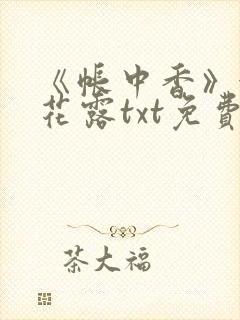 《帐中香》
花露txt免費
茶大福